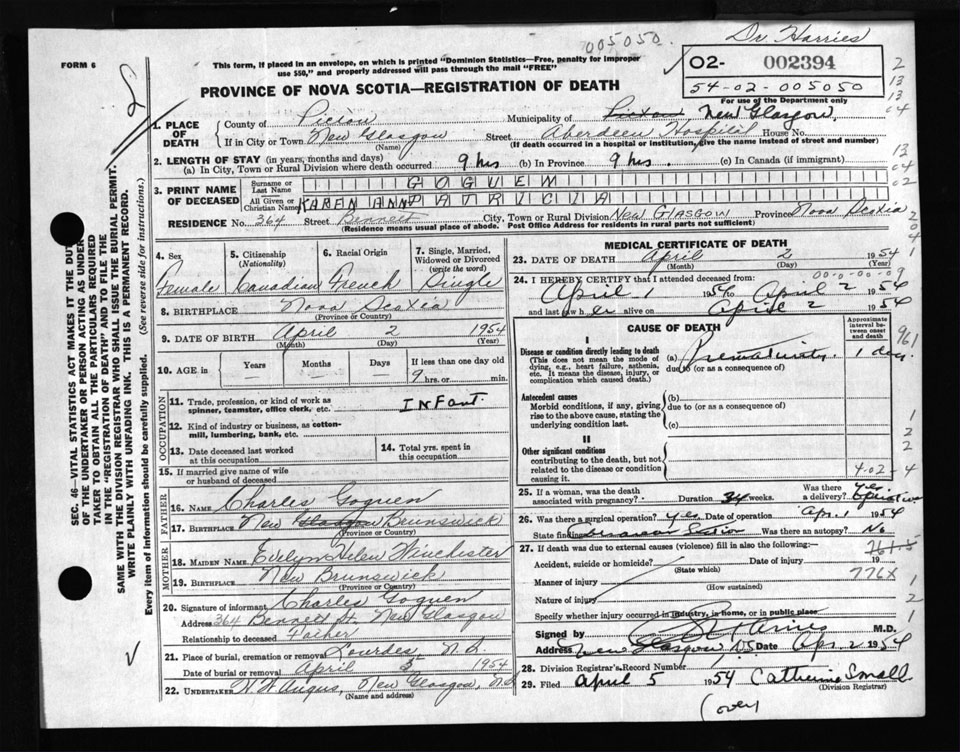 005050.
Dr Harries
FORM 6
This form, if placed in an envelope, on which is printed "Dominion Statistics—Free, penalty for improper
use $50," and properly addressed will pass through the mail "FREE"
02- 002394
54-02-005050
For use of the Department only
PROVINCE OF NOVA SCOTIA—REGISTRATION OF DEATH
1. PLACE OF DEATH
County of Pictou Municipality of Pictou, New Glasgow,
If in City or Town New Glasgow (Name) Street Aberdeen Hospital House No.
(If death occurred in a hospital or institution, give the name instead of street and number)
2. LENGTH OF STAY (in years, months and days)
(a) In City, Town or Rural Division where death occurred 9 hrs (b) In Province 9 hrs. (c) In Canada (if immigrant)
3. PRINT NAME OF DECEASED
Surname or Last Name GOGUEN
All Given or Christian Names KAREN ANN PATRICIA
RESIDENCE No. 364 Street Bennett City, Town or Rural Division NEW GLASGOW Province Nova Scotia
(Residence means usual place of abode. Post Office Address for residents in rural parts not sufficient)
4. Sex Female
5. Citizenship (Nationality) Canadian
6. Racial Origin French
7. Single, Married, Widowed or Divorced (write the word) Single
8. BIRTHPLACE Nova Scotia
(Province or Country)
9. DATE OF BIRTH April 2 1954
(Month) (Day) (Year)
10. AGE in Years — Months — Days — If less than one day old 9 hrs. or min.
OCCUPATION
11. Trade, profession, or kind of work as spinner, teamster, office clerk, etc. INFant
12. Kind of industry or business, as cotton-mill, lumbering, bank, etc.
13. Date deceased last worked at this occupation
14. Total yrs. spent in this occupation
15. If married give name of wife or husband of deceased
FATHER
16. Name Charles Goguen
17. Birthplace New Glasgow Brunswick
(Province or Country)
MOTHER
18. Maiden Name Evelyn Helen Winchester
19. Birthplace New Brunswick
(Province or Country)
20. Signature of informant Charles Goguen
Address 364 Bennett St, New Glasgow
Relationship to deceased Father
21. Place of burial, cremation or removal Lourdes, N.S.
Date of burial or removal April 5 1954
22. Undertaker W W Angus, New Glasgow, N.S.
(Name and address)
MEDICAL CERTIFICATE OF DEATH
23. DATE OF DEATH April 2 1954
(Month) (Day) (Year)
24. I HEREBY CERTIFY that I attended deceased from: 00-0-00-09
April 1 1954 to April 2 1954
and last saw her alive on April 2 1954
CAUSE OF DEATH
Approximate interval between onset and death
I
Disease or condition directly leading to death
(This does not mean the mode of dying, e.g., heart failure, asthenia, etc. It means the disease, injury, or complication which caused death.)
(a) Prematurity. 1 day.
due to (or as a consequence of)
Antecedent causes
Morbid conditions, if any, giving rise to the above cause, stating the underlying condition last.
(b)
due to (or as a consequence of)
(c)
II
Other significant conditions
contributing to the death, but not related to the disease or condition causing it.
4-02-4
25. If a woman, was the death associated with pregnancy? Duration 34 weeks. Was there a delivery? yes
26. Was there a surgical operation? yes Date of operation Apr. 1 1954
State findings Caesarean Section Was there an autopsy? No
27. If death was due to external causes (violence) fill in also the following:—
761.5
Accident, suicide or homicide? Date of injury 19
(State which)
776X
Manner of injury
(How sustained)
Nature of injury
Specify whether injury occurred in industry, in home, or in public place
Signed by Harries M.D.
Address New Glasgow, NS Date Apr. 2 1954
28. Division Registrar's Record Number
29. Filed April 5 1954 Catherine Small
(Division Registrar)
(over)
SEC. 46—VITAL STATISTICS ACT MAKES IT THE DUTY
OF THE UNDERTAKER OR PERSON ACTING AS UNDER-
TAKER TO OBTAIN ALL THE PARTICULARS REQUIRED
IN THE "REGISTRATION OF DEATH" AND TO FILE THE
SAME WITH THE DIVISION REGISTRAR WHO SHALL ISSUE THE BURIAL PERMIT.
WRITE PLAINLY WITH UNFADING INK. THIS IS A PERMANENT RECORD.
Every item of information should be carefully supplied. (See reverse side for instructions.)
2
13
13
04
13
04
02
204
1
961
1
2
2
1
2